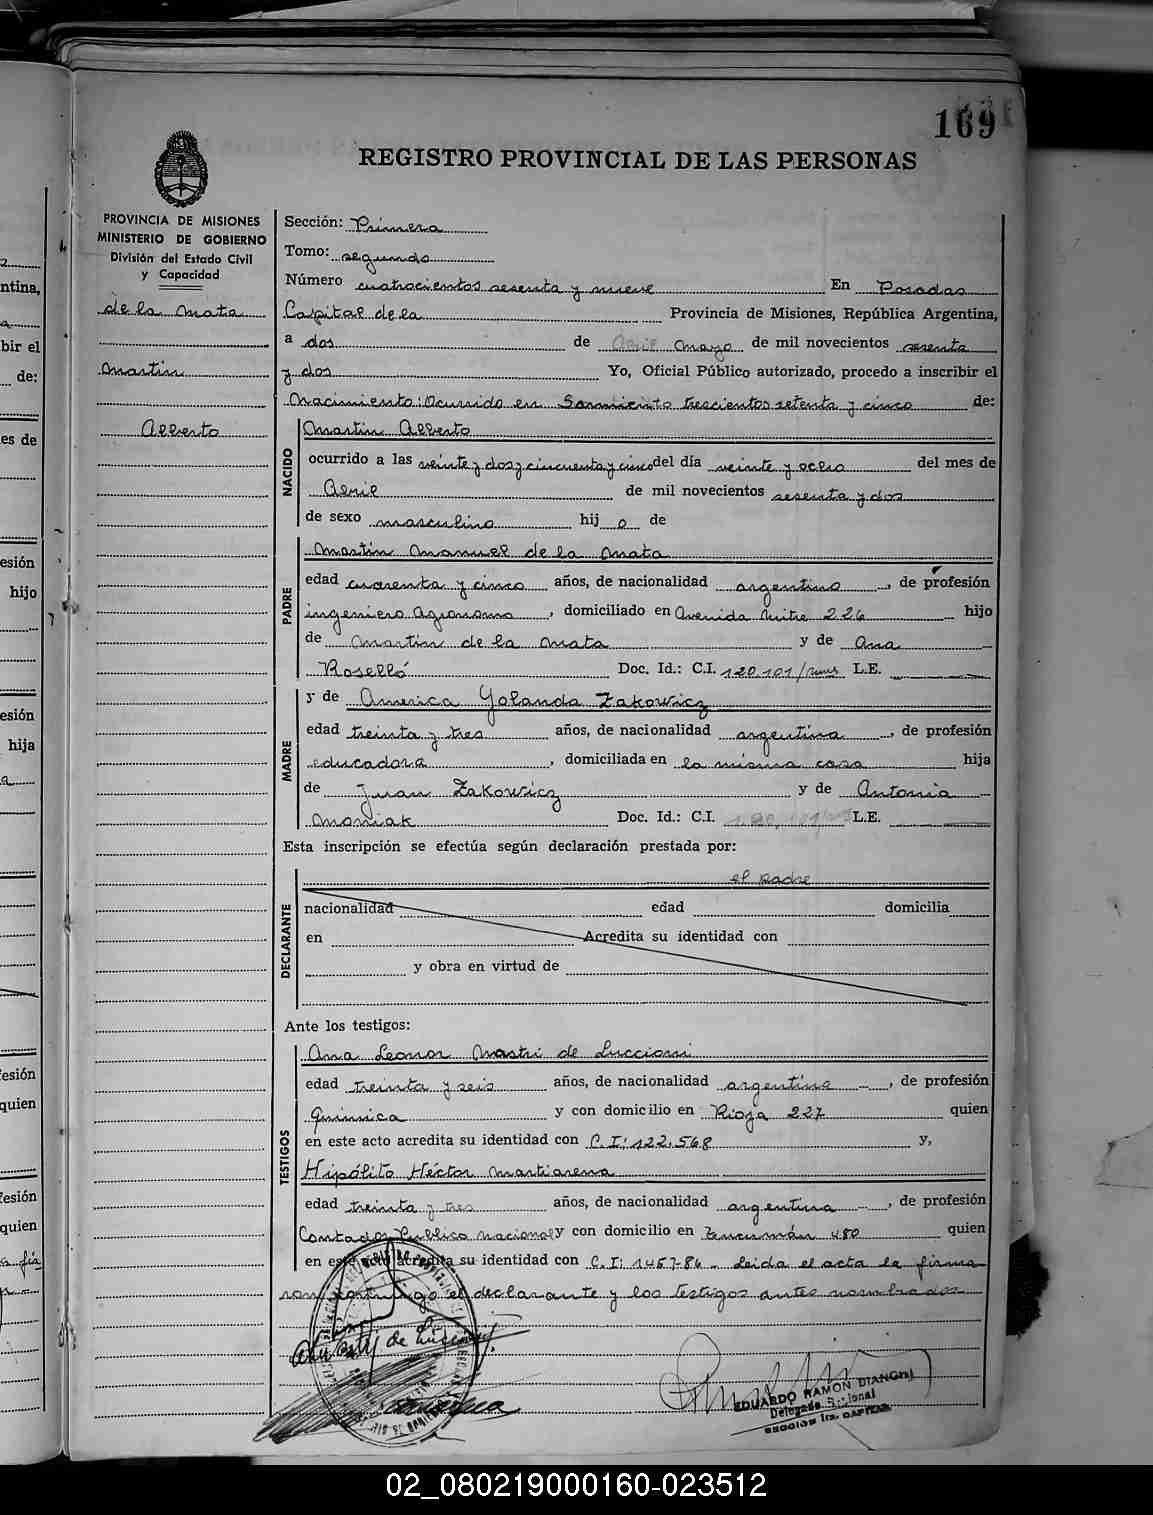 169
REGISTRO PROVINCIAL DE LAS PERSONAS
PROVINCIA DE MISIONES
MINISTERIO DE GOBIERNO
División del Estado Civil
y Capacidad
de la Mata
Martin
Alberto
Sección: Primera
Tomo: segundo
Número cuatrocientos sesenta y nueve En Posadas
Capital de la Provincia de Misiones, República Argentina,
a dos de Abril mayo de mil novecientos sesenta
y dos Yo, Oficial Público autorizado, procedo a inscribir el
Nacimiento: Ocurrido en Sarmiento trescientos setenta y cinco de:
NACIDO
Martin Alberto
ocurrido a las veinte y dos y cincuenta y cinco del día veinte y ocho del mes de
Abril de mil novecientos sesenta y dos
de sexo masculino hij o de
PADRE
Martin Manuel de la Mata
edad cuarenta y cinco años, de nacionalidad argentino, de profesión
ingeniero Agronomo, domiciliado en Avenida Mitre 226 hijo
de Martin de la Mata y de Ana
Roselló Doc. Id.: C.I. 120.101/ L.E.
MADRE
y de America Yolanda Zakowicz
edad treinta y tres años, de nacionalidad argentina, de profesión
educadora, domiciliada en la misma casa hija
de Juan Zakowicz y de Antonia
Moniak Doc. Id.: C.I. L.E.
Esta inscripción se efectúa según declaración prestada por:
DECLARANTE
el padre
nacionalidad edad domicilia
en Acredita su identidad con
y obra en virtud de
Ante los testigos:
TESTIGOS
Ana Leonor Mastri de Luccioni
edad treinta y seis años, de nacionalidad argentina, de profesión
Quimica y con domicilio en Rioja 227 quien
en este acto acredita su identidad con C.I: 122.568 y,
Hipólito Héctor Martiarena
edad treinta y tres años, de nacionalidad argentina, de profesión
Contador Publico Nacional y con domicilio en Tucumán 480 quien
en este acto acredita su identidad con C.I: 1457-86 Leida el acta la firma
con el declarante y los testigos antes nombrados
EDUARDO RAMON DIANGHI
SECCION 1ra. CAPITAL
ntina,
bir el
de:
es de
esión
hijo
esión
hija
esión
quien
esión
quien
02_080219000160-023512